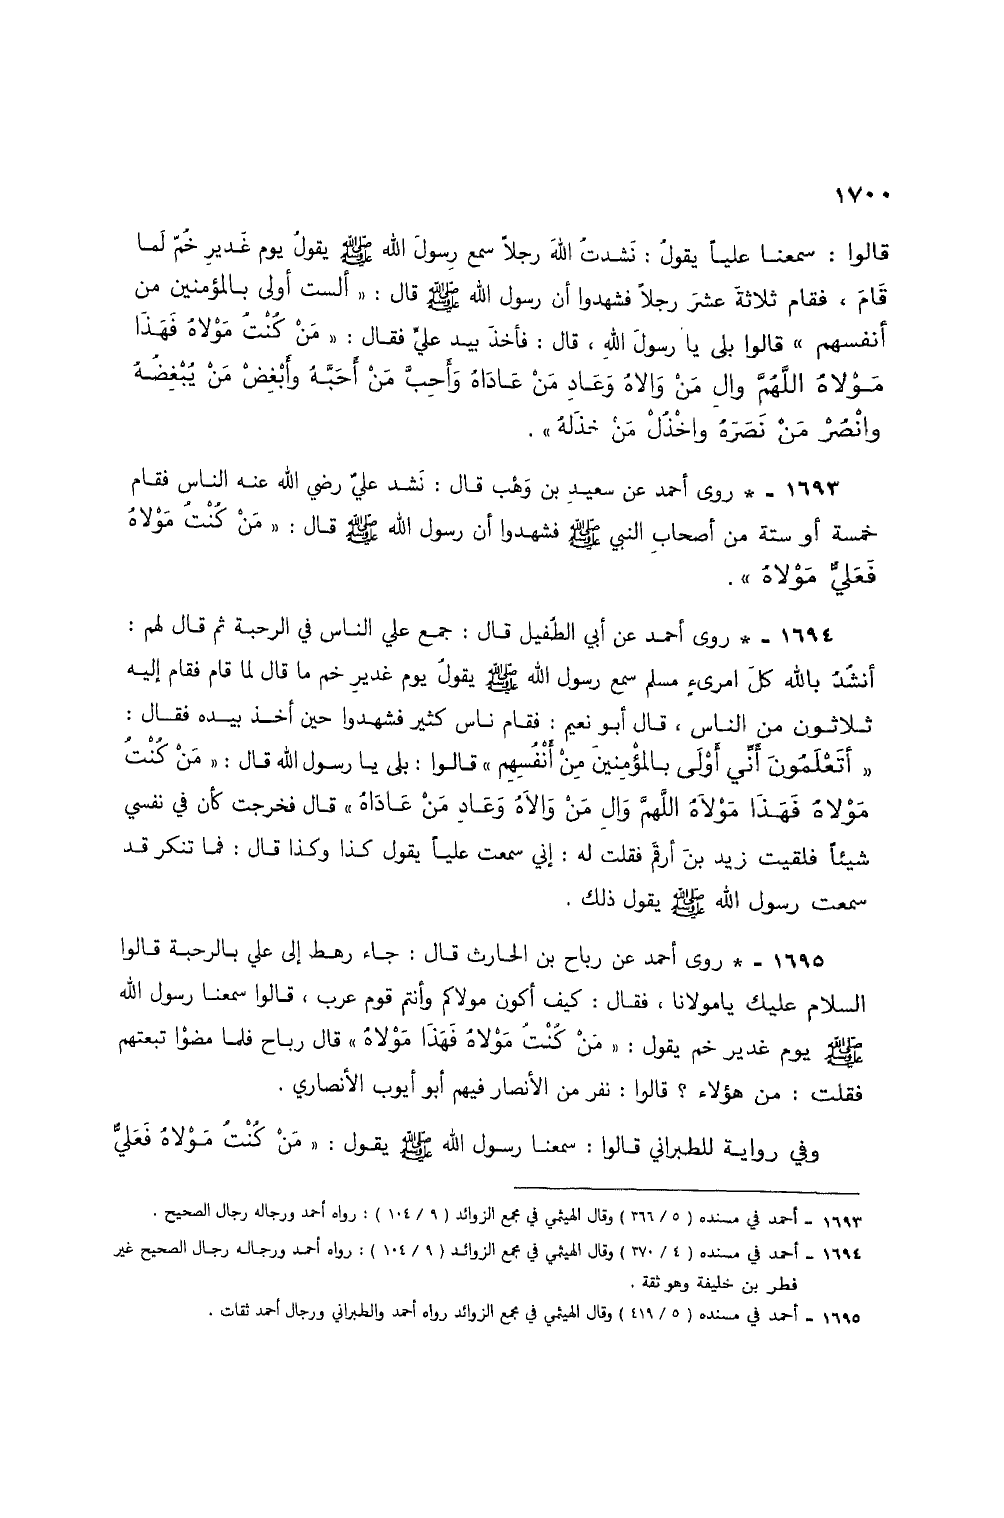 ١٧٠٠
قالوا : سمعنا علياً يقولُ : نَشدتُ اللهَ رجلاً سمع رِسولَ الله ﷺ يقولُ يوم غَديرِ خُمّ لَما
قَامَ ، فقام ثلاثةَ عشرَ رجلاً فشهدوا أن رسول الله ﷺ قال : « ألست أولى بالمؤمنين من
أنفسهم » قالوا بلى يا رسولَ اللهِ ، قال : فأخذَ بيد عليٍّ فقال : « مَنْ كُنْتُ مَوْلاهُ فَهَذَا
مَوْلاهُ اللَّهُمَّ والِ مَنْ وَالاهُ وَعَادِ مَنْ عَادَاهُ وَأَحِبَّ مَنْ أَحَبَّهُ وأَبْغِضْ مَنْ يُبْغِضُهُ
وانْصُرْ مَنْ نَصَرَهُ واخْذُلْ مَنْ خذَلهُ » .
١٦٩٣ - * روى أحمد عن سعيدِ بن وَهْب قال : نَشد عليّ رضي الله عنه الناس فقام
خمسة أو ستة من أصحابِ النبي ﷺ فشهدوا أن رسول الله ﷺ قال : « مَنْ كُنْتُ مَوْلاهُ
فَعَليٌّ مَوْلاهُ » .
١٦٩٤ - * روى أحمد عن أبي الطُفيل قال : جمع علي الناس في الرحبة ثم قال لهم :
أنشُدُ بالله كلَ امرىءٍ مسلم سمع رسول الله ﷺ يقولُ يوم غديرِ خم ما قال لما قام فقام إليه
ثلاثون من الناس ، قال أبو نعيم : فقام ناس كثير فشهدوا حين أخذ بيده فقال :
« أَتَعْلَمُونَ أَنِّي أَوْلَى بالمُؤْمِنِينَ مِنْ أَنْفُسِهِم » قالوا : بلى يا رسول الله قال : « مَنْ كُنْتُ
مَوْلاهُ فَهَذَا مَوْلاَهُ اللَّهمَّ وَالِ مَنْ وَالاَهُ وَعَادِ مَنْ عَادَاهُ » قال فخرجت كأن في نفسي
شيئاً فلقيت زيد بنَ أرقَم فقلت له : إني سمعت علياً يقول كذا وكذا قال : فما تنكر قد
سمعت رسول الله ﷺ يقول ذلك .
١٦٩٥ - * روى أحمد عن رباح بن الحارث قال : جاء رهط إلى علي بالرحبة قالوا
السلام عليك يامولانا ، فقال : كيف أكون مولاكم وأنتم قوم عرب ، قالوا سمعنا رسول الله
ﷺ يوم غدير خم يقول : « مَنْ كُنْتُ مَوْلاهُ فَهَذَا مَوْلاهُ » قال رباح فلما مضوْا تبعتهم
فقلت : من هؤلاء ؟ قالوا : نفر من الأنصار فيهم أبو أيوب الأنصاري .
وفي رواية للطبراني قالوا : سمعنا رسول الله ﷺ يقول : « مَنْ كُنْتُ مَوْلاهُ فَعَليٌّ
١٦٩٣ - أحمد في مسنده ( ٥ / ٣٦٦ ) وقال الهيثمي في مجمع الزوائد ( ٩ / ١٠٤ ) : رواه أحمد ورجاله رجال الصحيح .
١٦٩٤ - أحمد في مسنده ( ٤ / ٣٧٠ ) وقال الهيثمي في مجمع الزوائد ( ٩ / ١٠٤ ) : رواه أحمد ورجاله رجال الصحيح غير
فطر بن خليفة وهو ثقة .
١٦٩٥ - أحمد في مسنده ( ٥ / ٤١٩ ) وقال الهيثمي في مجمع الزوائد رواه أحمد والطبراني ورجال أحمد ثقات .